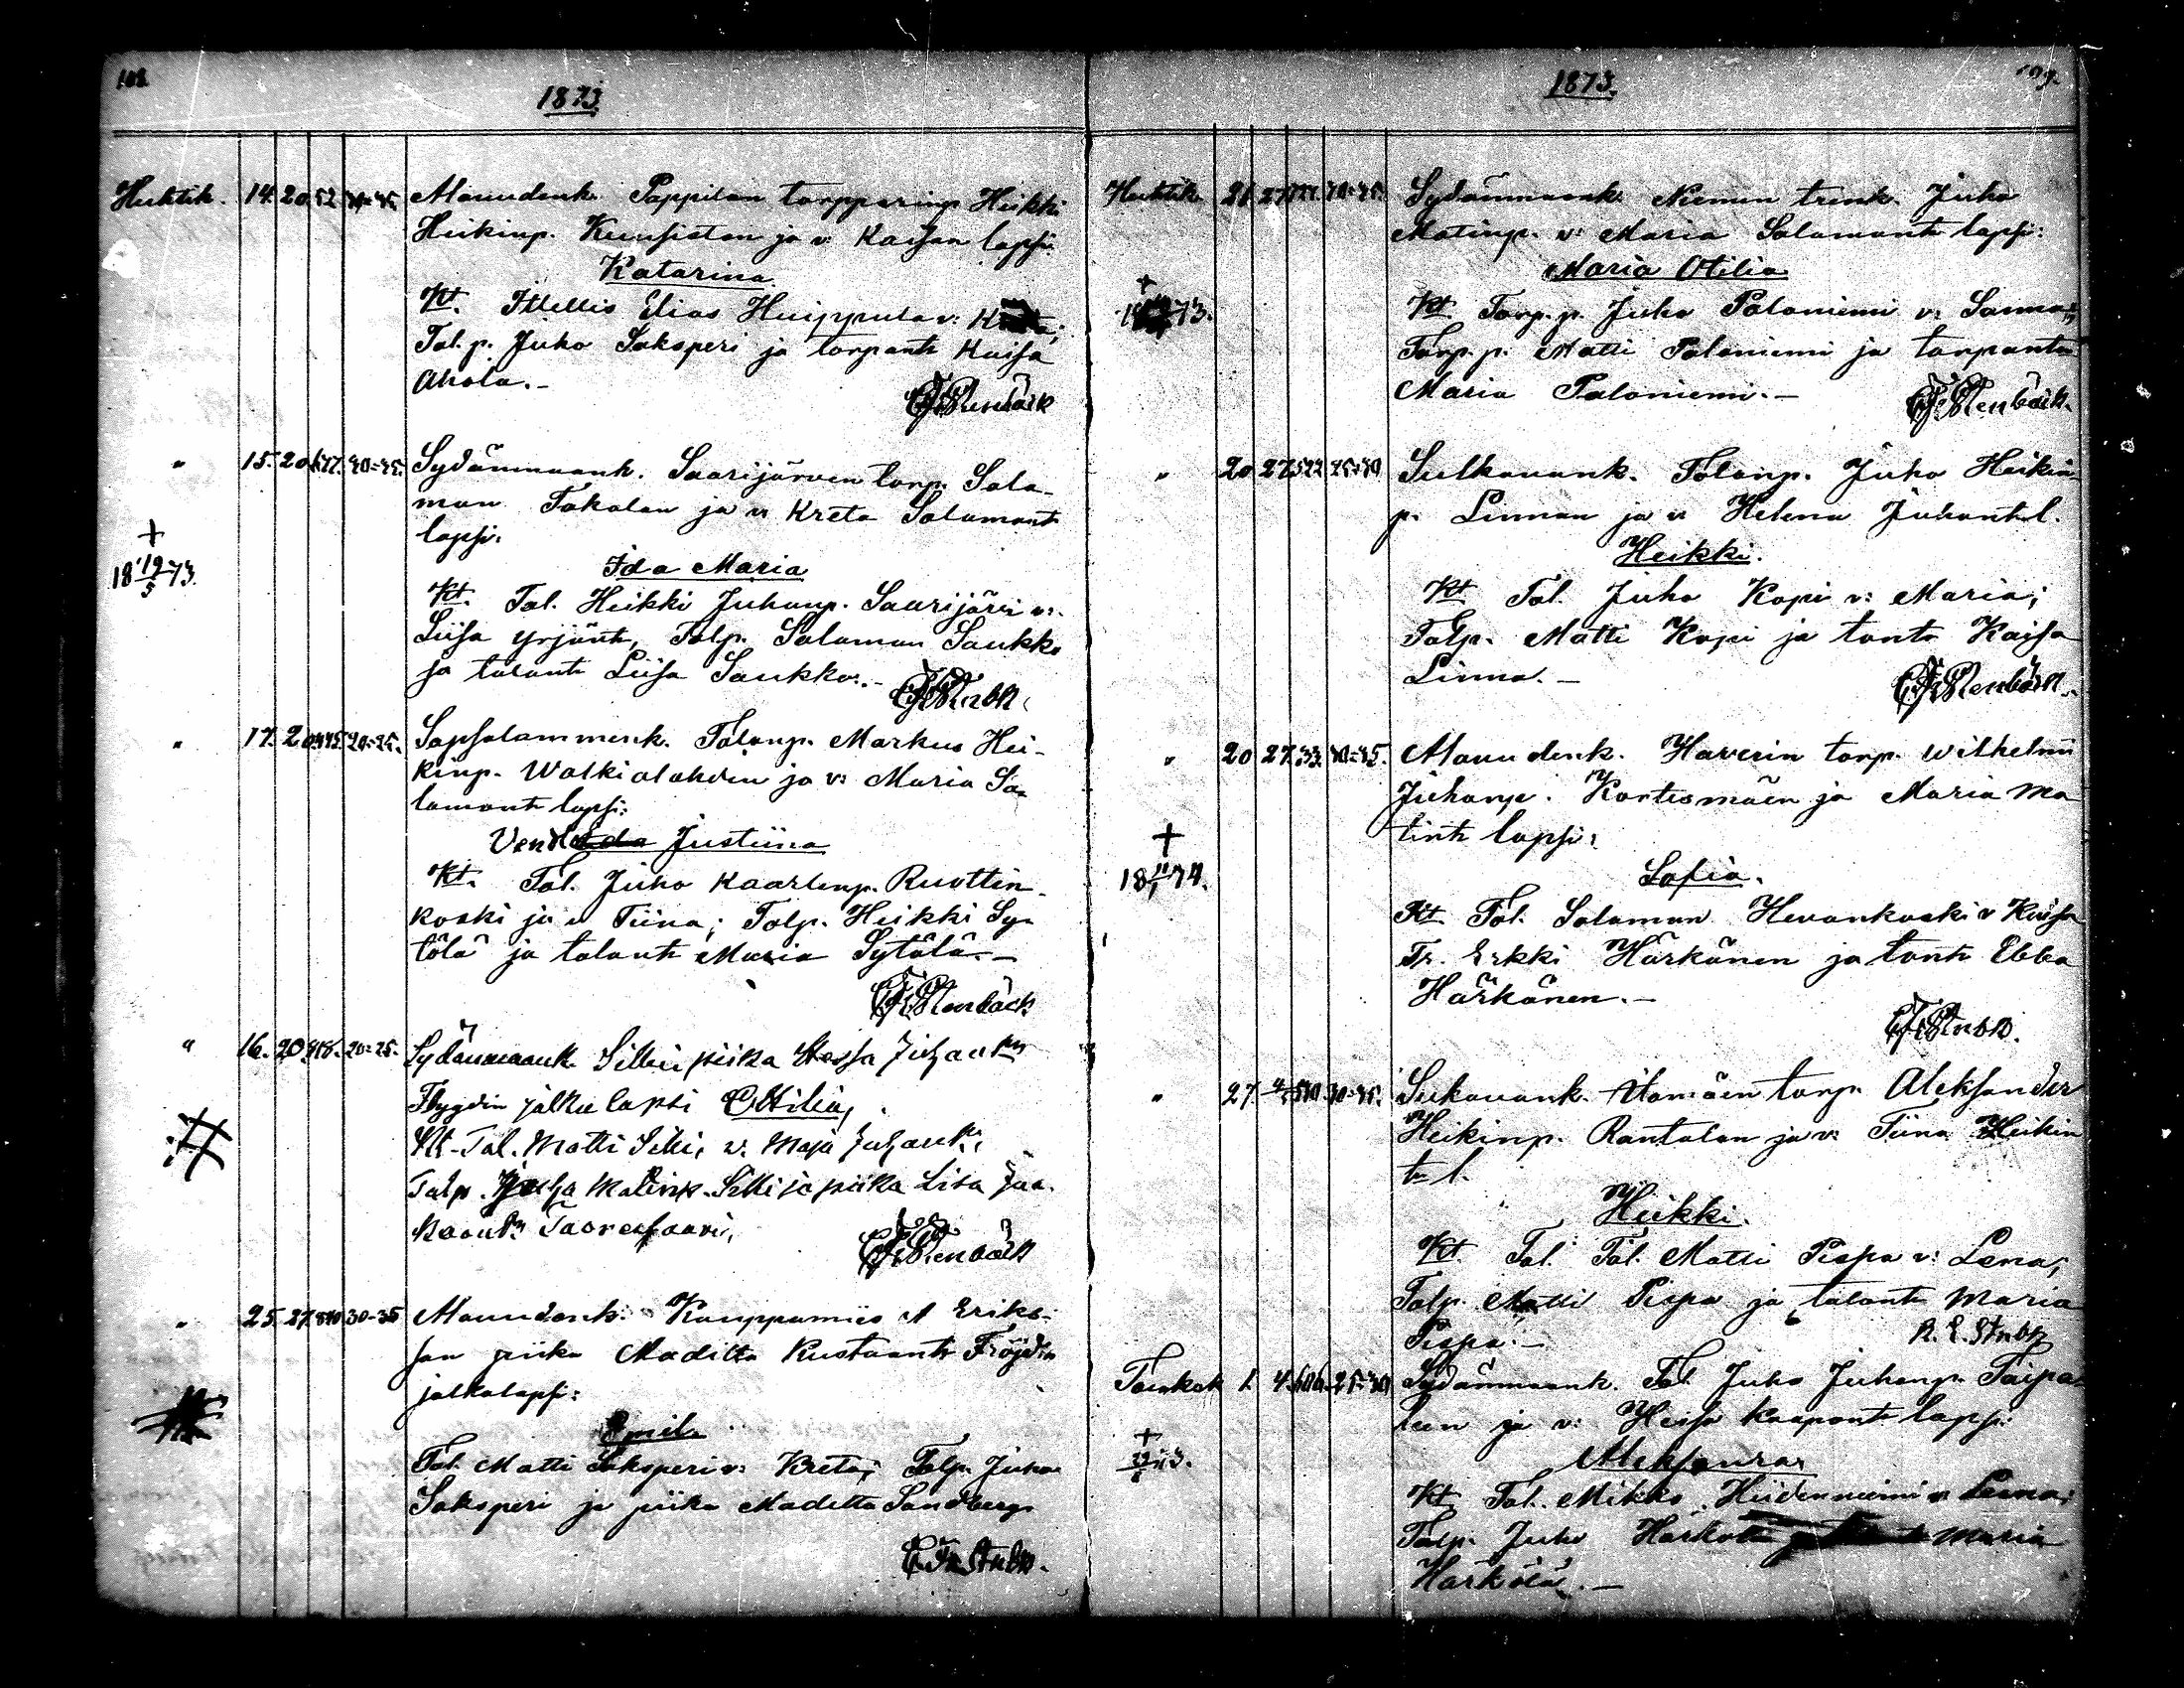 108.
1873
Huhtik. 14. 20. 52. 40-45. Muudenk. Pappilan torpparinp. Heikki
Heikinp. Kunsistan ja v: Kaisan lapsi.
Katarina
Kt. Itellis Elias Huippula v:
Tal. p. Juho Saksperi ja torpantr Kaisa
Ahola.-
" 15. 20. 40-45. Sydänmaank. Saarijärven torp. Salo-
mon Takalan ja v: Kreta Salamontr
lapsi.
+
18 19/5 73.
Ida Maria
Kt. Tal. Heikki Juhanp. Saarijärvi v:
Liisa Yrjäntr, Talp. Salamon Saukko
ja talantr Liisa Saukko.-
" 17. 20. 445. 20-25. Sapsalammenk. Talonp. Markus Hei-
kinp. Walkialahden ja v: Maria Sa-
lamontr lapsi:
Vendla Justiina
Kt. Tal. Juho Kaarlenp. Ruottin-
koski ja v: Tiina; Talp. Heikki Sy-
tölä ja talantr Maria Sytälä.-
CFStenbäck
" 16. 20. 818. 20-25. Sydänmaank. Silli piika Juhantr
Flygdin jälkulapsi Ottilia,
Kt. Tal. Matti Silli, v. Maja Juhantr,
Talp. Juha Matinp. Silli ja piika Lisa Jaa-
kontr
CFStenbäck
" 25. 27. 840 30-35 Muudenk: Kauppamies A Eriks-
son piika Maditta Kustaantr Fröjdin
jalkalapsi:
Emil
Tal. Matti Saksperi v: Kreta; Talp. Juho
Saksperi ja piika Maditta Sandberg.
109.
1873.
Huhtik. 21 27. 40-45. Sydänmaank. Niemen trenk. Juho
Matinp. v: Maria Salamontr lapsi:
Maria Otilia
+
73.
Kt. Torp. p. Juho Paloniemi v: Sanna;
Torp. p. Matti Paloniemi ja torpantr
Maria Paloniemi.-
CFStenbäck.
" 20 27. 522 25-30 Sulkavank. Talonp. Juho Heikin-
p. Linnan ja v: Helena Juhantr l.
Heikki.
Kt Tal. Juho Kopi v: Maria;
Talp. Matti Kopi ja tantr Kaisa
Linna.-
CFStenbäck.
" 20 27. 33. 40-45. Muudenk. Haverin torp. Wilhelmi
Juhanp. Kortesmäen ja Maria Ma
tintr lapsi:
+
18 11/1 74.
Sofia.
Kt. Tal. Salamon Hevonkoski v Kaisa
Tr. Erkki Härkönen ja tantr Ebba
Härkönen.-
" 27. 40-45. Sukavank. torp. Aleksander
Heikinp. Rantalan ja v: Tiina Heikin
tr l.
Heikki.
Kt. Tal. Tal. Matti Pispa v: Lena;
Talp. Matti Pispa ja talantr Maria
Pispa.-
Toukok 1. 4. 606. 25-30 Sydänmaank. Tal. Juho Juhanp. Taipa-
leen ja v: Heisa Kaapontr lapsi:
+
Aleksandra
Kt. Tal. Mikko Hiidenniemi v: Leena;
Talp. Juho Härkölä Maria
Härkölä.-